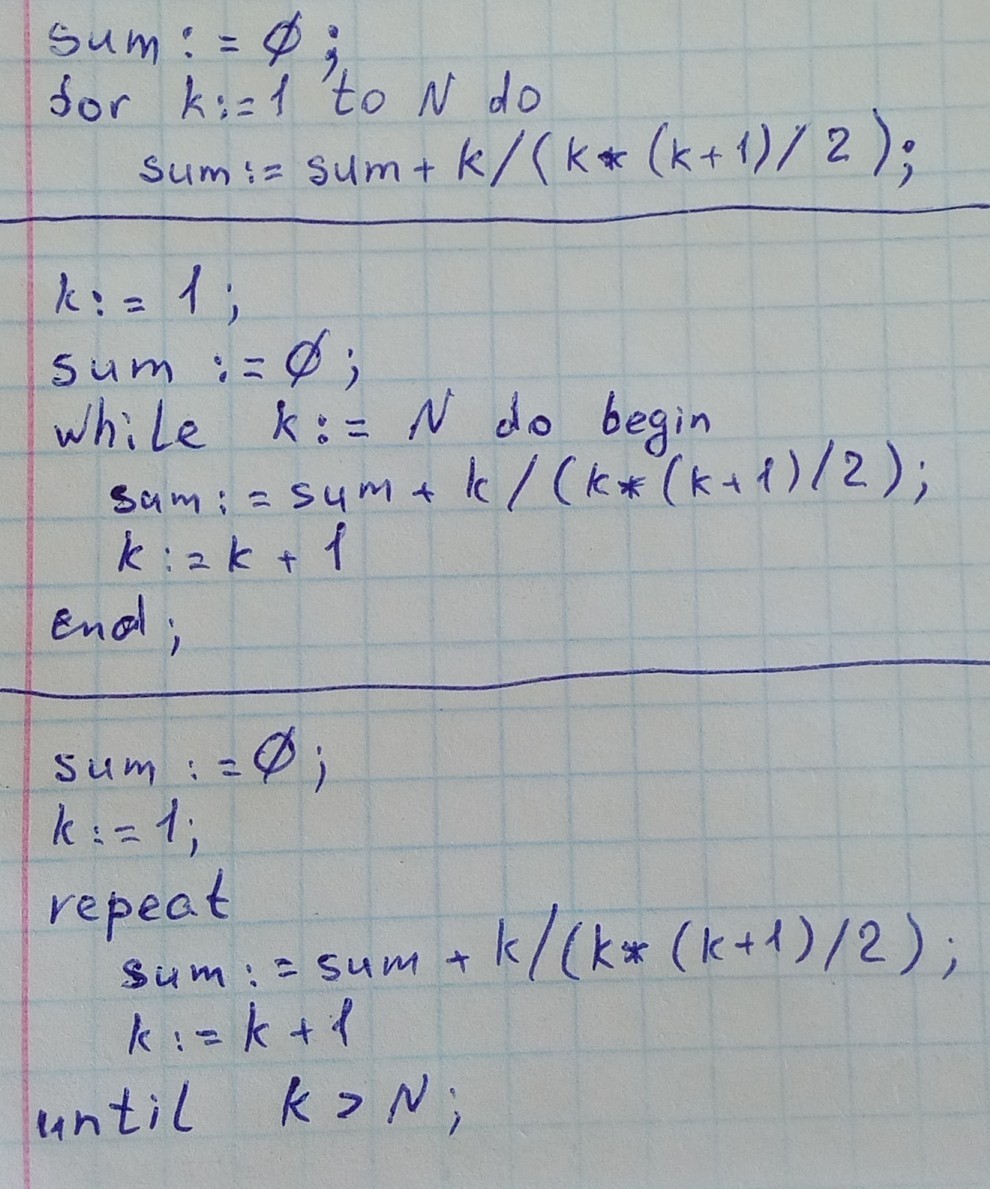 sum := Ø;
for k:=1 to N do
sum:= sum + k/(k*(k+1)/2);
k:= 1;
sum := Ø;
while k:= N do begin
sum:= sum + k/(k*(k+1)/2);
k:=k + 1
end;
sum := Ø;
k:=1;
repeat
sum:= sum + k/(k*(k+1)/2);
k:= k + 1
until k > N;